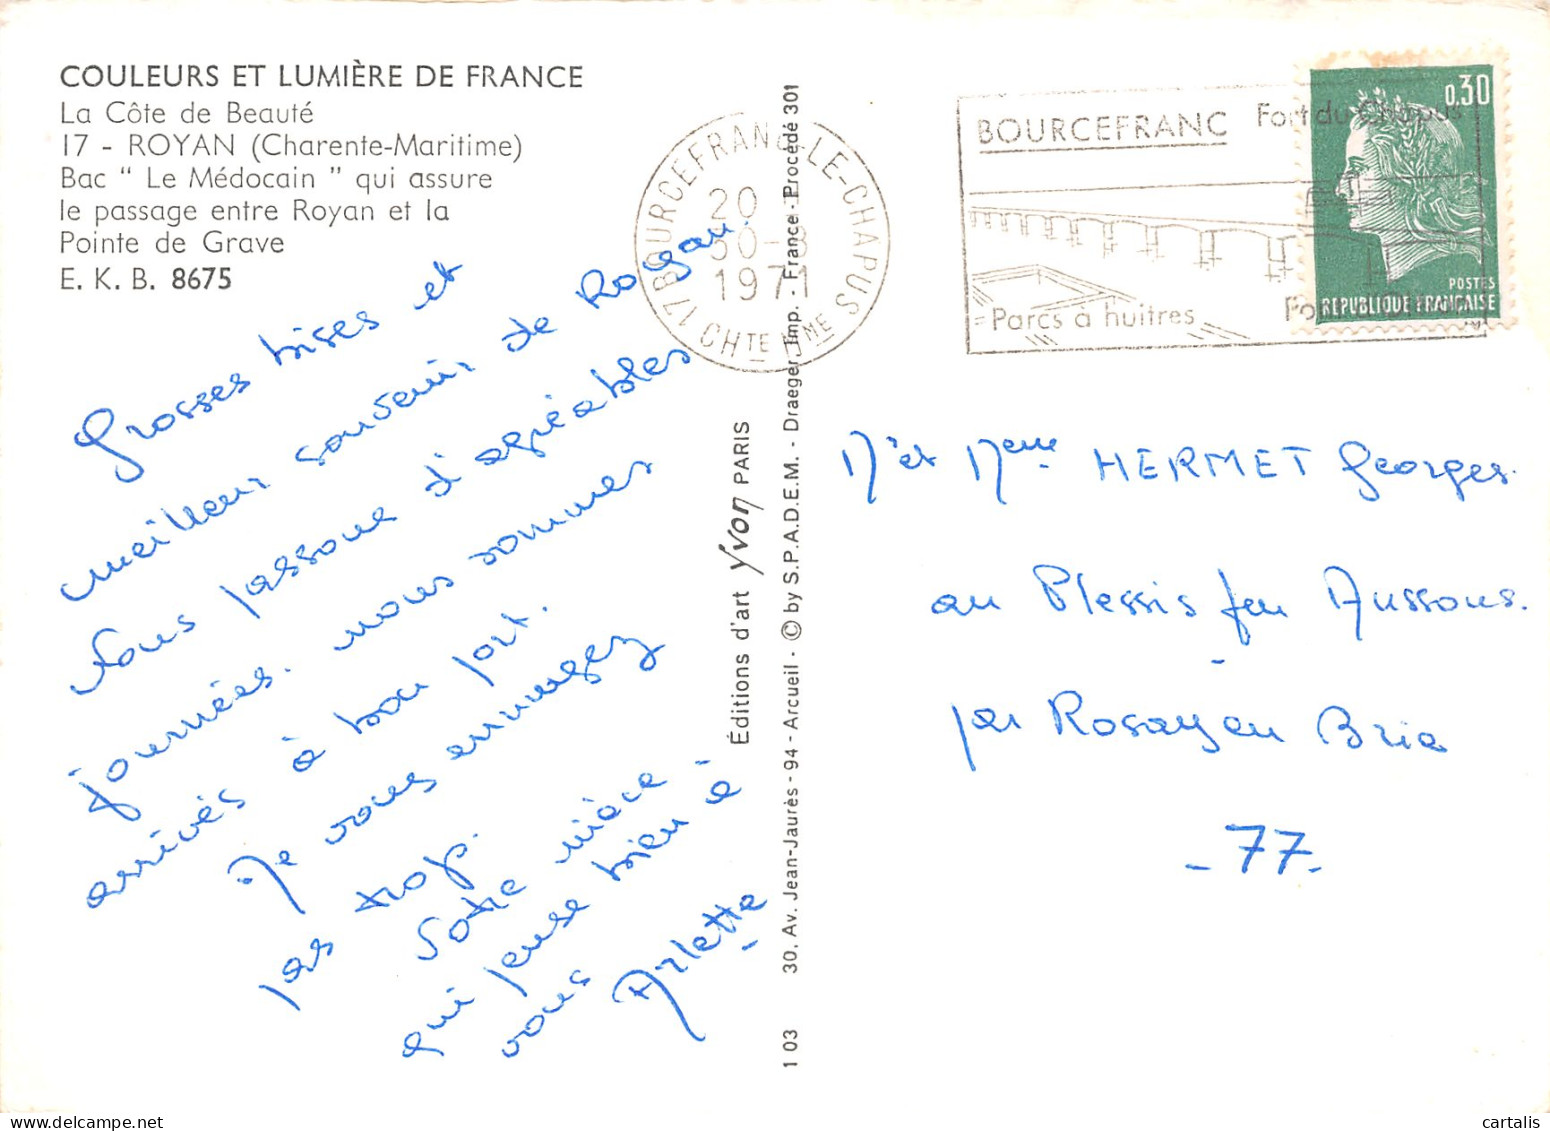 COULEURS ET LUMIÈRE DE FRANCE
La Côte de Beauté
17 - ROYAN (Charente-Maritime)
Bac " Le Médocain " qui assure
le passage entre Royan et la
Pointe de Grave
E. K. B. 8675
Grosses bises et
meilleur souvenir de Royan.
Nous passons d'agréables
journées. nous sommes
arrivés à bon port.
Je vous ennuyez
pas trop.
Votre nièce
qui pense bien à
vous
Arlette
Éditions d'art Yvon PARIS
1 03 30, Av. Jean-Jaurès - 94 - Arcueil - © by S.P.A.D.E.M. - Draeger Imp. - France - Procédé 301
17 BOURCEFRANC-LE-CHAPUS
CHTE MME
20
30-8
1971
BOURCEFRANC
Fort du Chapus
Parcs à huitres
0,30
POSTES
REPUBLIQUE FRANÇAISE
Mr et Mme HERMET Georges.
au Plessis feu Aussous.
par Rosay en Brie
- 77.
cartalis